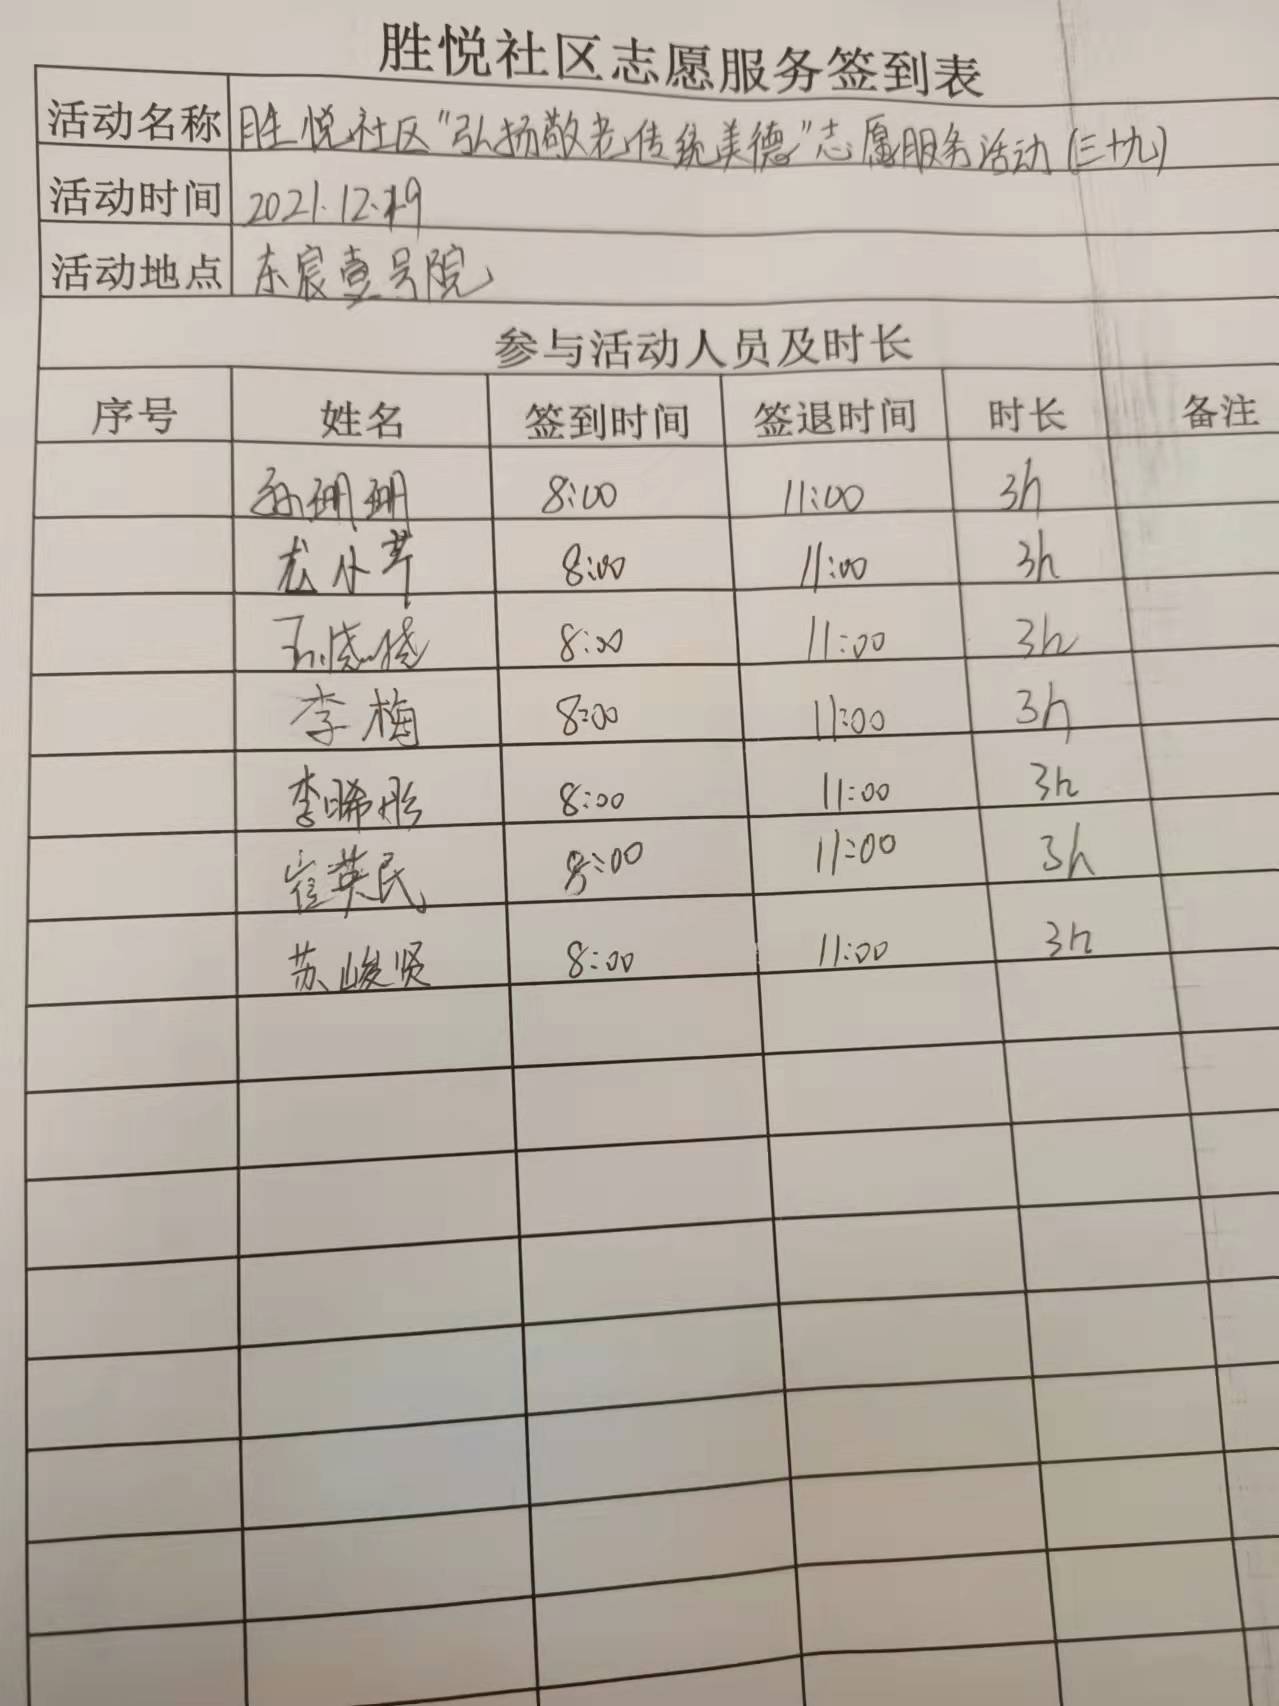 胜悦社区志愿服务签到表
活动名称 胜悦社区“弘扬敬老传统美德”志愿服务活动(三十九)
活动时间 2021.12.19
活动地点 东宸壹号院
参与活动人员及时长
序号 姓名 签到时间 签退时间 时长 备注
孙珊珊 8:00 11:00 3h
尤小芹 8:00 11:00 3h
8:00 11:00 3h
李梅 8:00 11:00 3h
李晞彤 8:00 11:00 3h
崔英民 8:00 11:00 3h
苏峻贤 8:00 11:00 3h